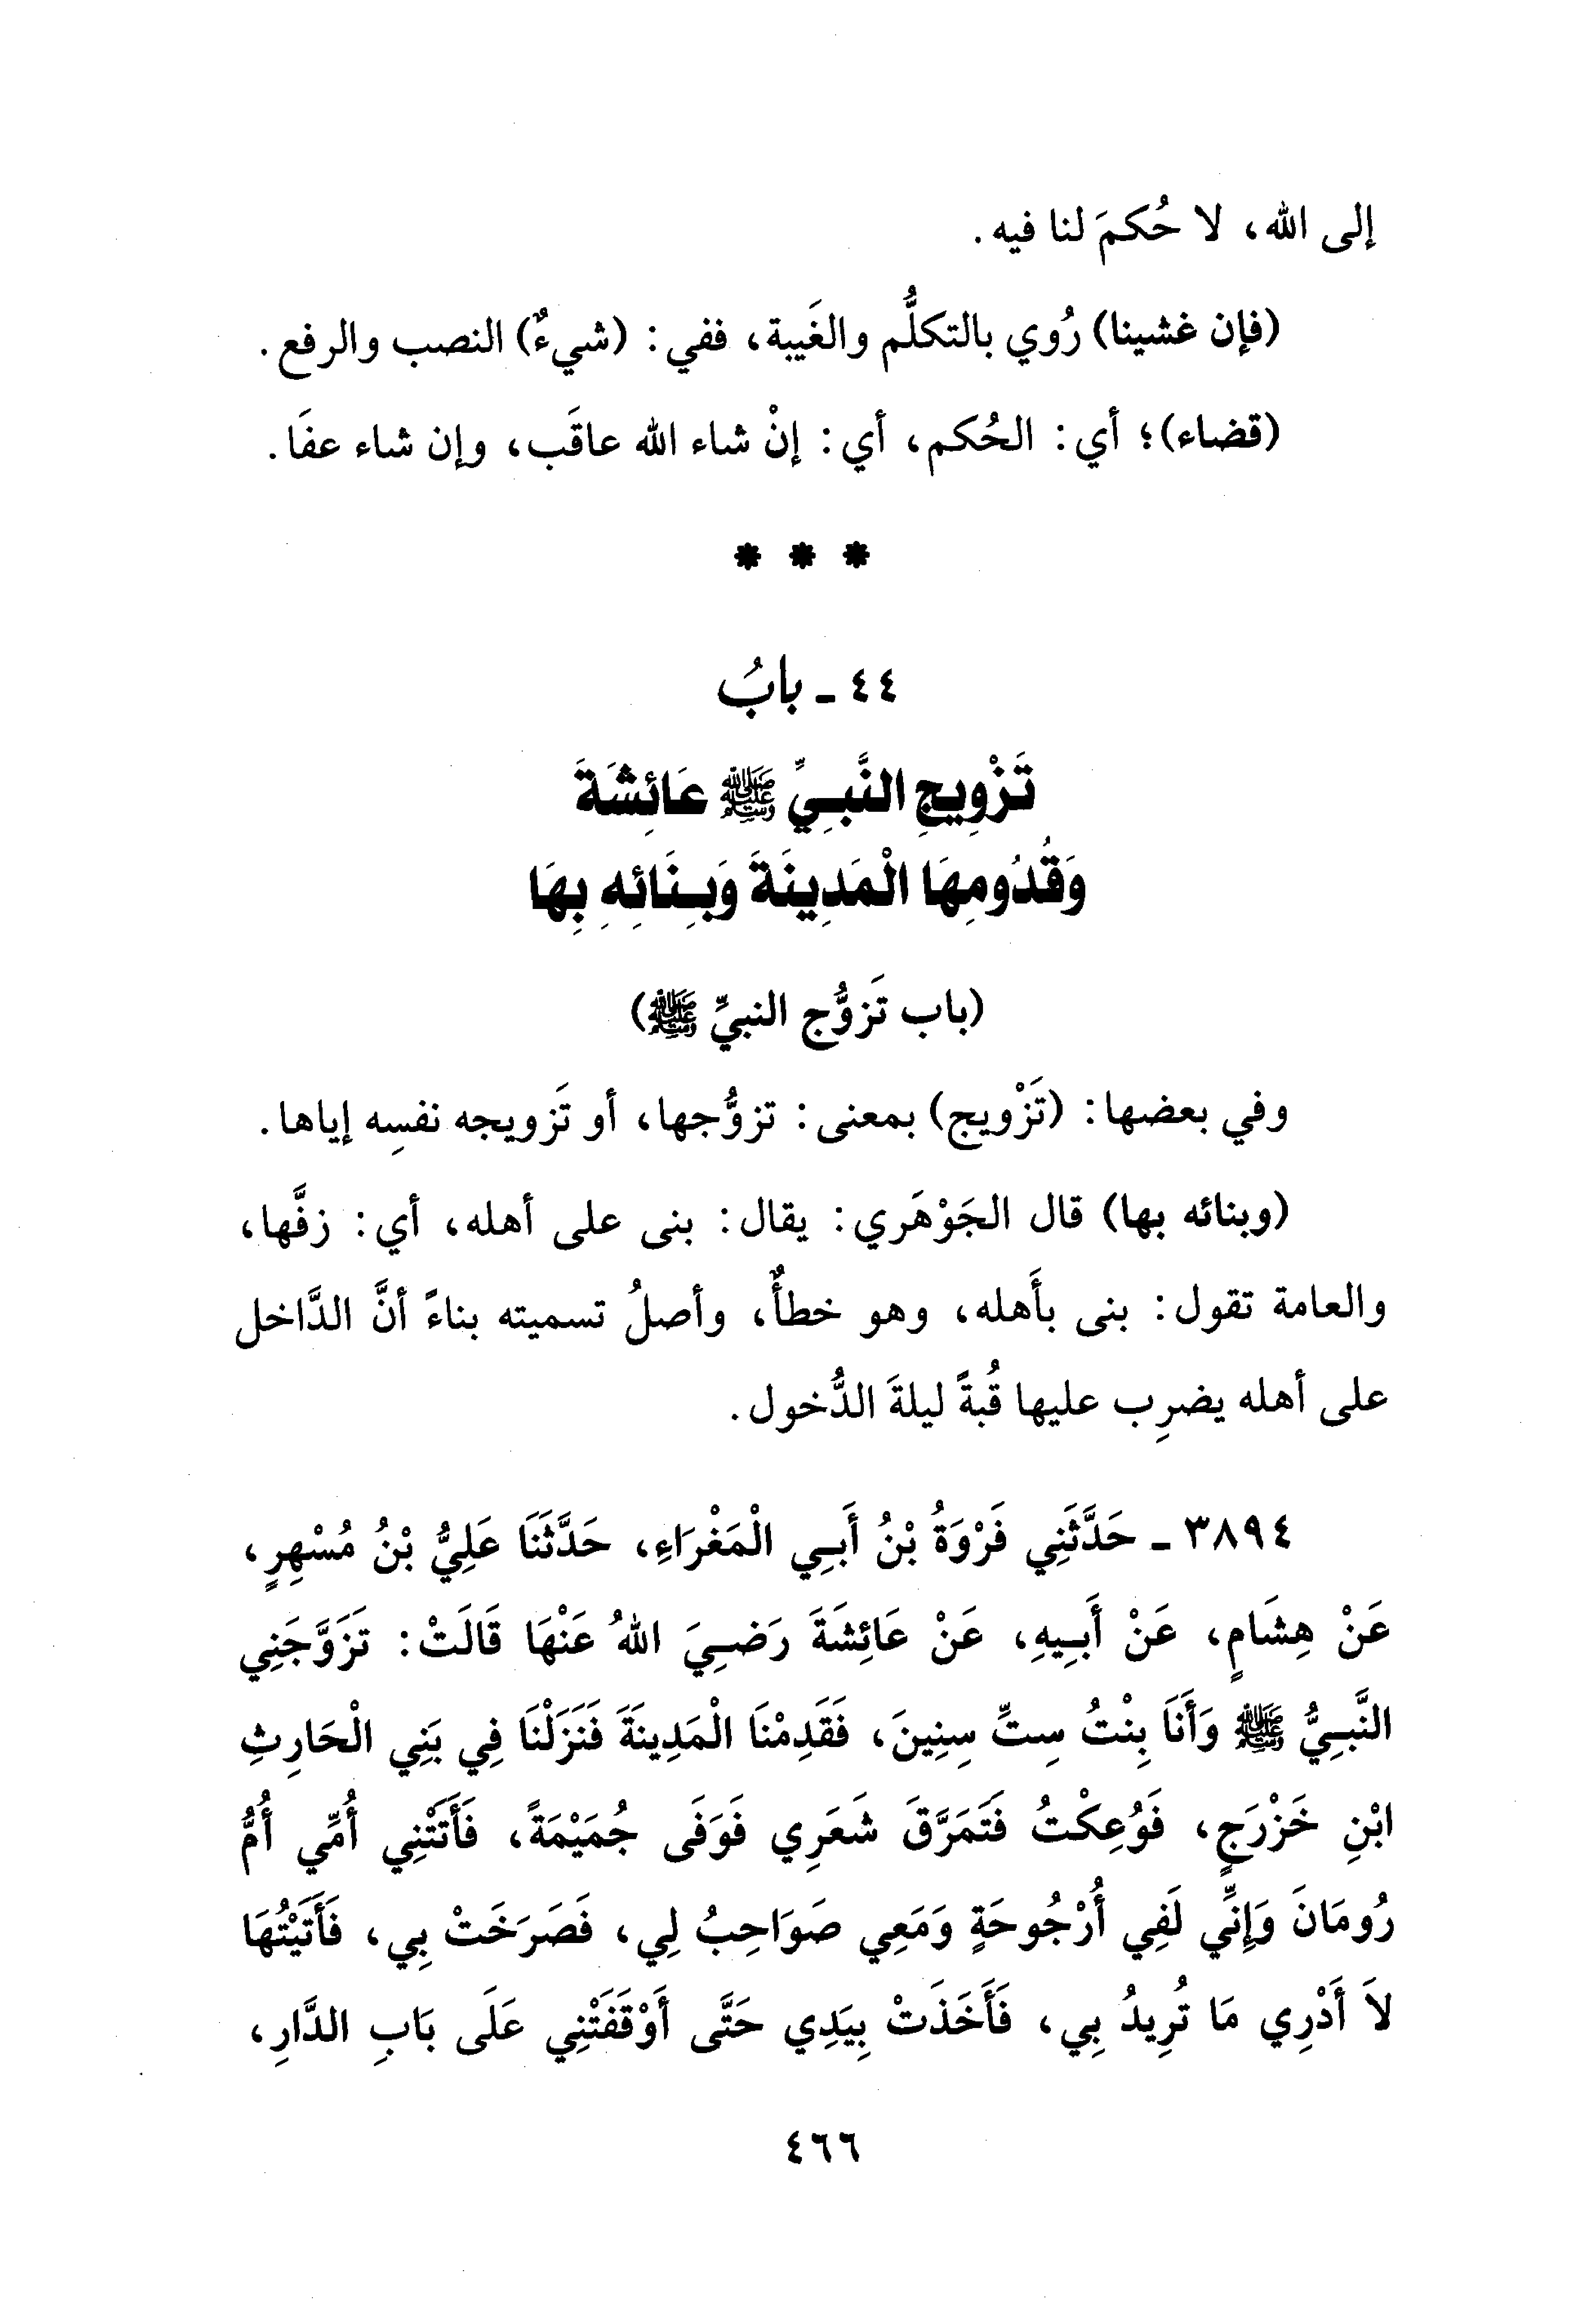 إلى الله، لا حُكمَ لنا فيه.
(فإن غشينا) رُوي بالتكلُّم والغَيبة، ففي: (شيءٌ) النصب والرفع.
(قضاء)؛ أي: الحُكم، أي: إنْ شاء الله عاقَب، وإن شاء عفَا.
* * *
٤٤ - بابُ
تَزْوِيجِ النَّبِيِّ ﷺ عَائِشَةَ
وَقُدُومِهَا الْمَدِينَةَ وَبِنَائِهِ بِهَا
(باب تَزوُّج النبيِّ ﷺ)
وفي بعضها: (تَزْويج) بمعنى: تزوُّجها، أو تَزويجه نفسِه إياها.
(وبنائه بها) قال الجَوْهَري: يقال: بنى على أهله، أي: زفَّها،
والعامة تقول: بنى بأَهله، وهو خطأٌ، وأصلُ تسميته بناءً أنَّ الدَّاخل
على أهله يضرِب عليها قُبةً ليلةَ الدُّخول.
٣٨٩٤ - حَدَّثَنِي فَرْوَةُ بْنُ أَبِي الْمَغْرَاءِ، حَدَّثَنَا عَلِيُّ بْنُ مُسْهِرٍ،
عَنْ هِشَامٍ، عَنْ أَبِيهِ، عَنْ عَائِشَةَ رَضِيَ اللهُ عَنْهَا قَالَتْ: تَزَوَّجَنِي
النَّبِيُّ ﷺ وَأَنَا بِنْتُ سِتِّ سِنِينَ، فَقَدِمْنَا الْمَدِينَةَ فَنَزَلْنَا فِي بَنِي الْحَارِثِ
ابْنِ خَزْرَجٍ، فَوُعِكْتُ فَتَمَرَّقَ شَعَرِي فَوَفَى جُمَيْمَةً، فَأَتَتْنِي أُمِّي أُمُّ
رُومَانَ وَإِنِّي لَفِي أُرْجُوحَةٍ وَمَعِي صَوَاحِبُ لِي، فَصَرَخَتْ بِي، فَأَتَيْتُهَا
لاَ أَدْرِي مَا تُرِيدُ بِي، فَأَخَذَتْ بِيَدِي حَتَّى أَوْقَفَتْنِي عَلَى بَابِ الدَّارِ،
٤٦٦